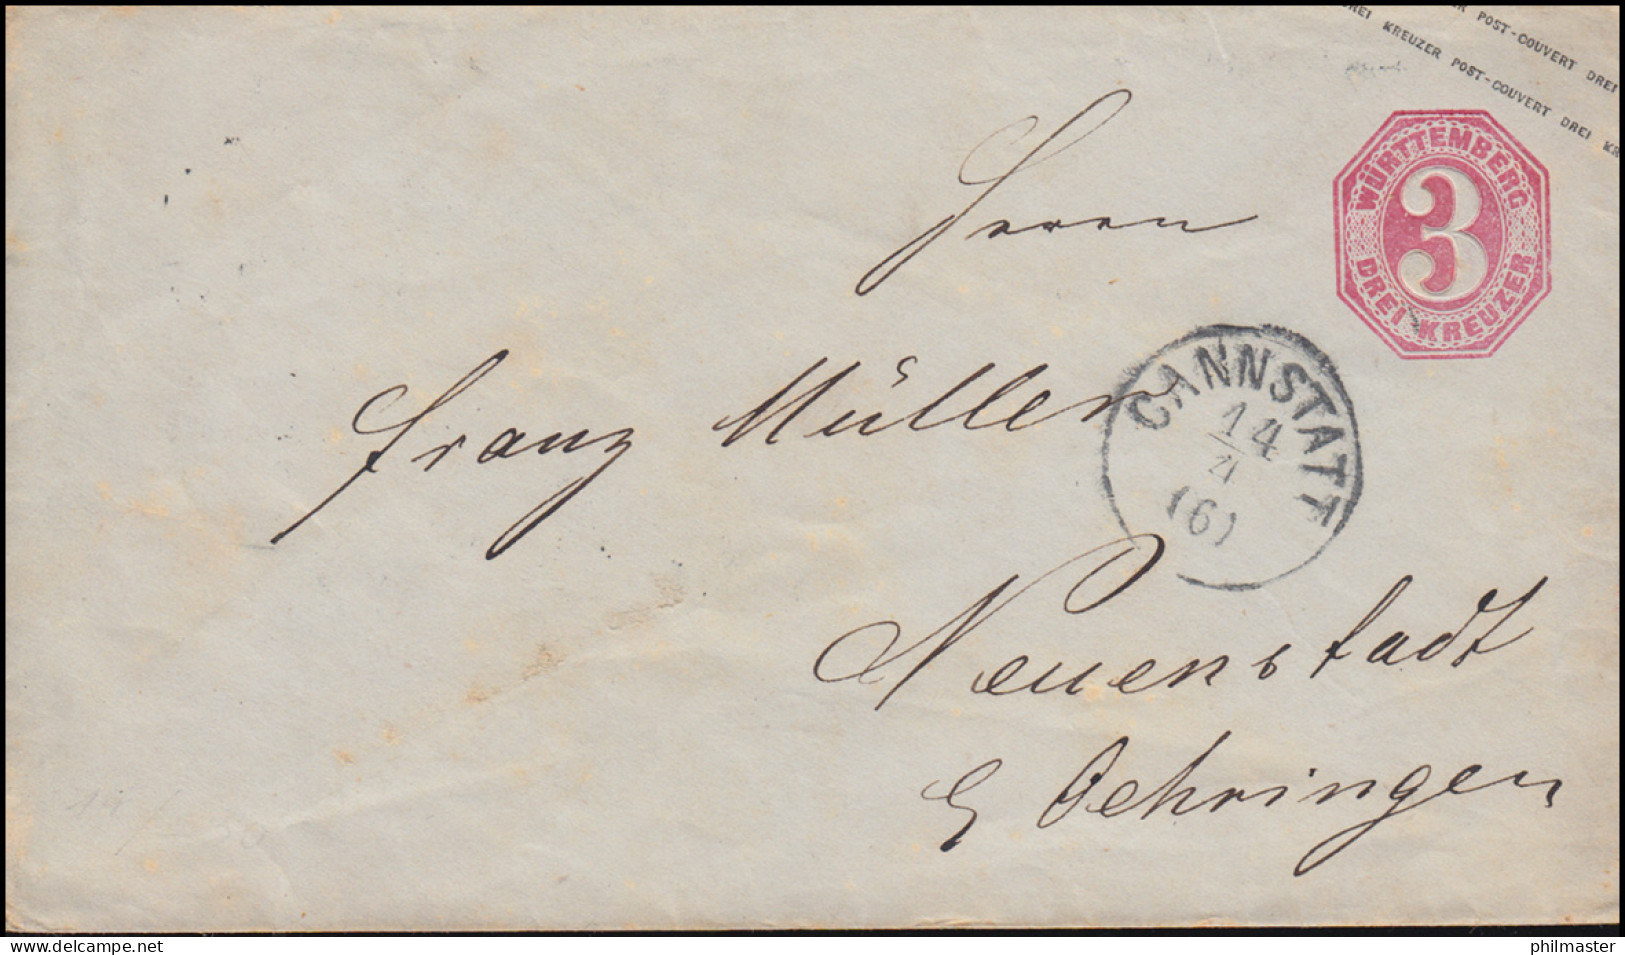 ER POST-COUVERT DREI
DREI KREUZER POST-COUVERT DREI KR
WÜRTTEMBERG
3
DREI KREUZER
Herrn
CANNSTATT
14
(6)
Franz Müller
Neuenstadt
Oehringen
delcampe.net
philmaster